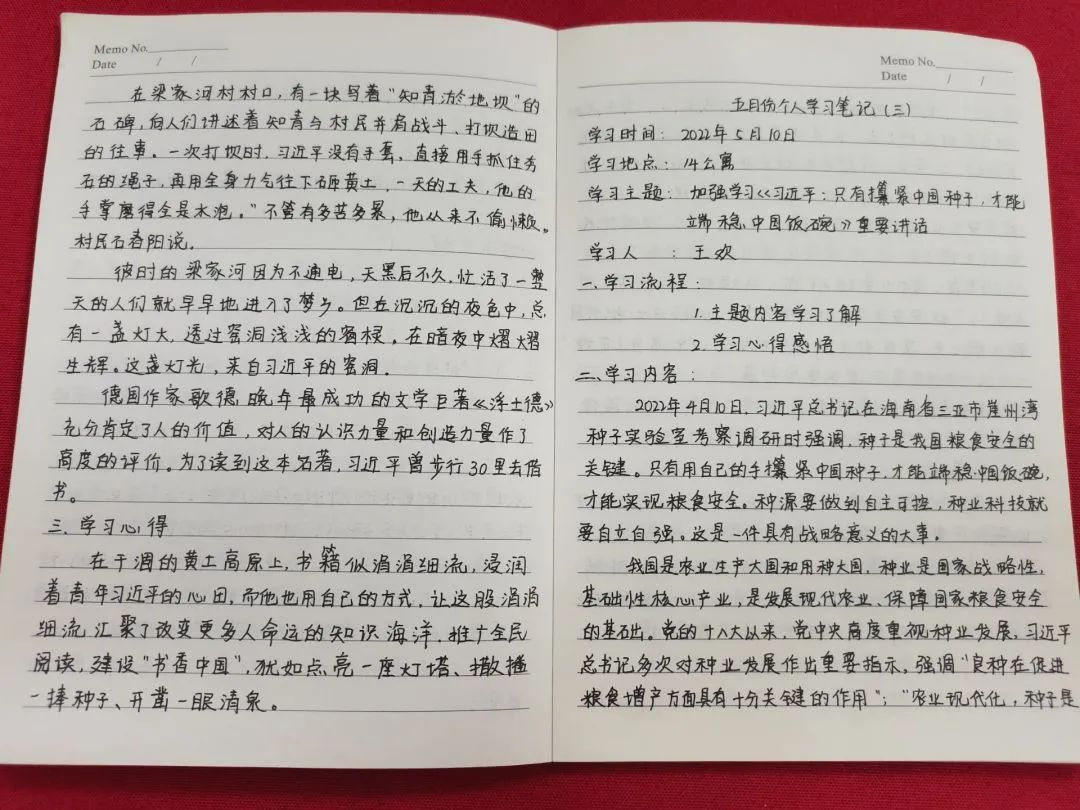 Memo No.
Date / /
在梁家河村村口，有一块写着“知青淤地坝”的
石碑，向人们讲述着知青与村民并肩战斗、打坝造田
的往事。一次打坝时，习近平没有手套，直接用手抓住夯
石的绳子，再用全身力气往下砸黄土，一天的工夫，他的
手掌磨得全是水泡。“不管有多苦多累，他从来不偷懒。
村民石春阳说．
彼时的梁家河因为不通电，天黑后不久，忙活了一整
天的人们就早早地进入了梦乡。但在沉沉的夜色中，总
有一盏灯火，透过窑洞浅浅的窗棂。在暗夜中熠熠
生辉。这盏灯光，来自习近平的窑洞．
德国作家歌德晚年最成功的文学巨著《浮士德》
充分肯定了人的价值，对人的认识力量和创造力量作了
高度的评价。为了读到这本名著，习近平曾步行30里去借
书。
三、学习心得
在干涸的黄土高原上，书籍似涓涓细流，浸润
着青年习近平的心田，而他也用自己的方式，让这股涓涓
细流汇聚了改变更多人命运的知识海洋，推广全民
阅读，建设“书香中国”，犹如点亮一座灯塔、撒播
一捧种子、开凿一眼清泉。
Memo No.
Date / /
五月份个人学习笔记（三）
学习时间：2022年5月10日
学习地点：14公寓
学习主题：加强学习《习近平：只有攥紧中国种子，才能
端稳中国饭碗》重要讲话
学习人：王欢
一、学习流程：
1.主题内容学习了解
2.学习心得感悟
二、学习内容：
2022年4月10日，习近平总书记在海南省三亚市崖州湾
种子实验室考察调研时强调，种子是我国粮食安全的
关键。只有用自己的手攥紧中国种子，才能端稳中国饭碗，
才能实现粮食安全。种源要做到自主可控，种业科技就
要自立自强。这是一件具有战略意义的大事。
我国是农业生产大国和用种大国，种业是国家战略性，
基础性核心产业，是发展现代农业、保障国家粮食安全
的基础。党的十八大以来，党中央高度重视种业发展，习近平
总书记多次对种业发展作出重要指示，强调“良种在促进
粮食增产方面具有十分关键的作用”；“农业现代化，种子是